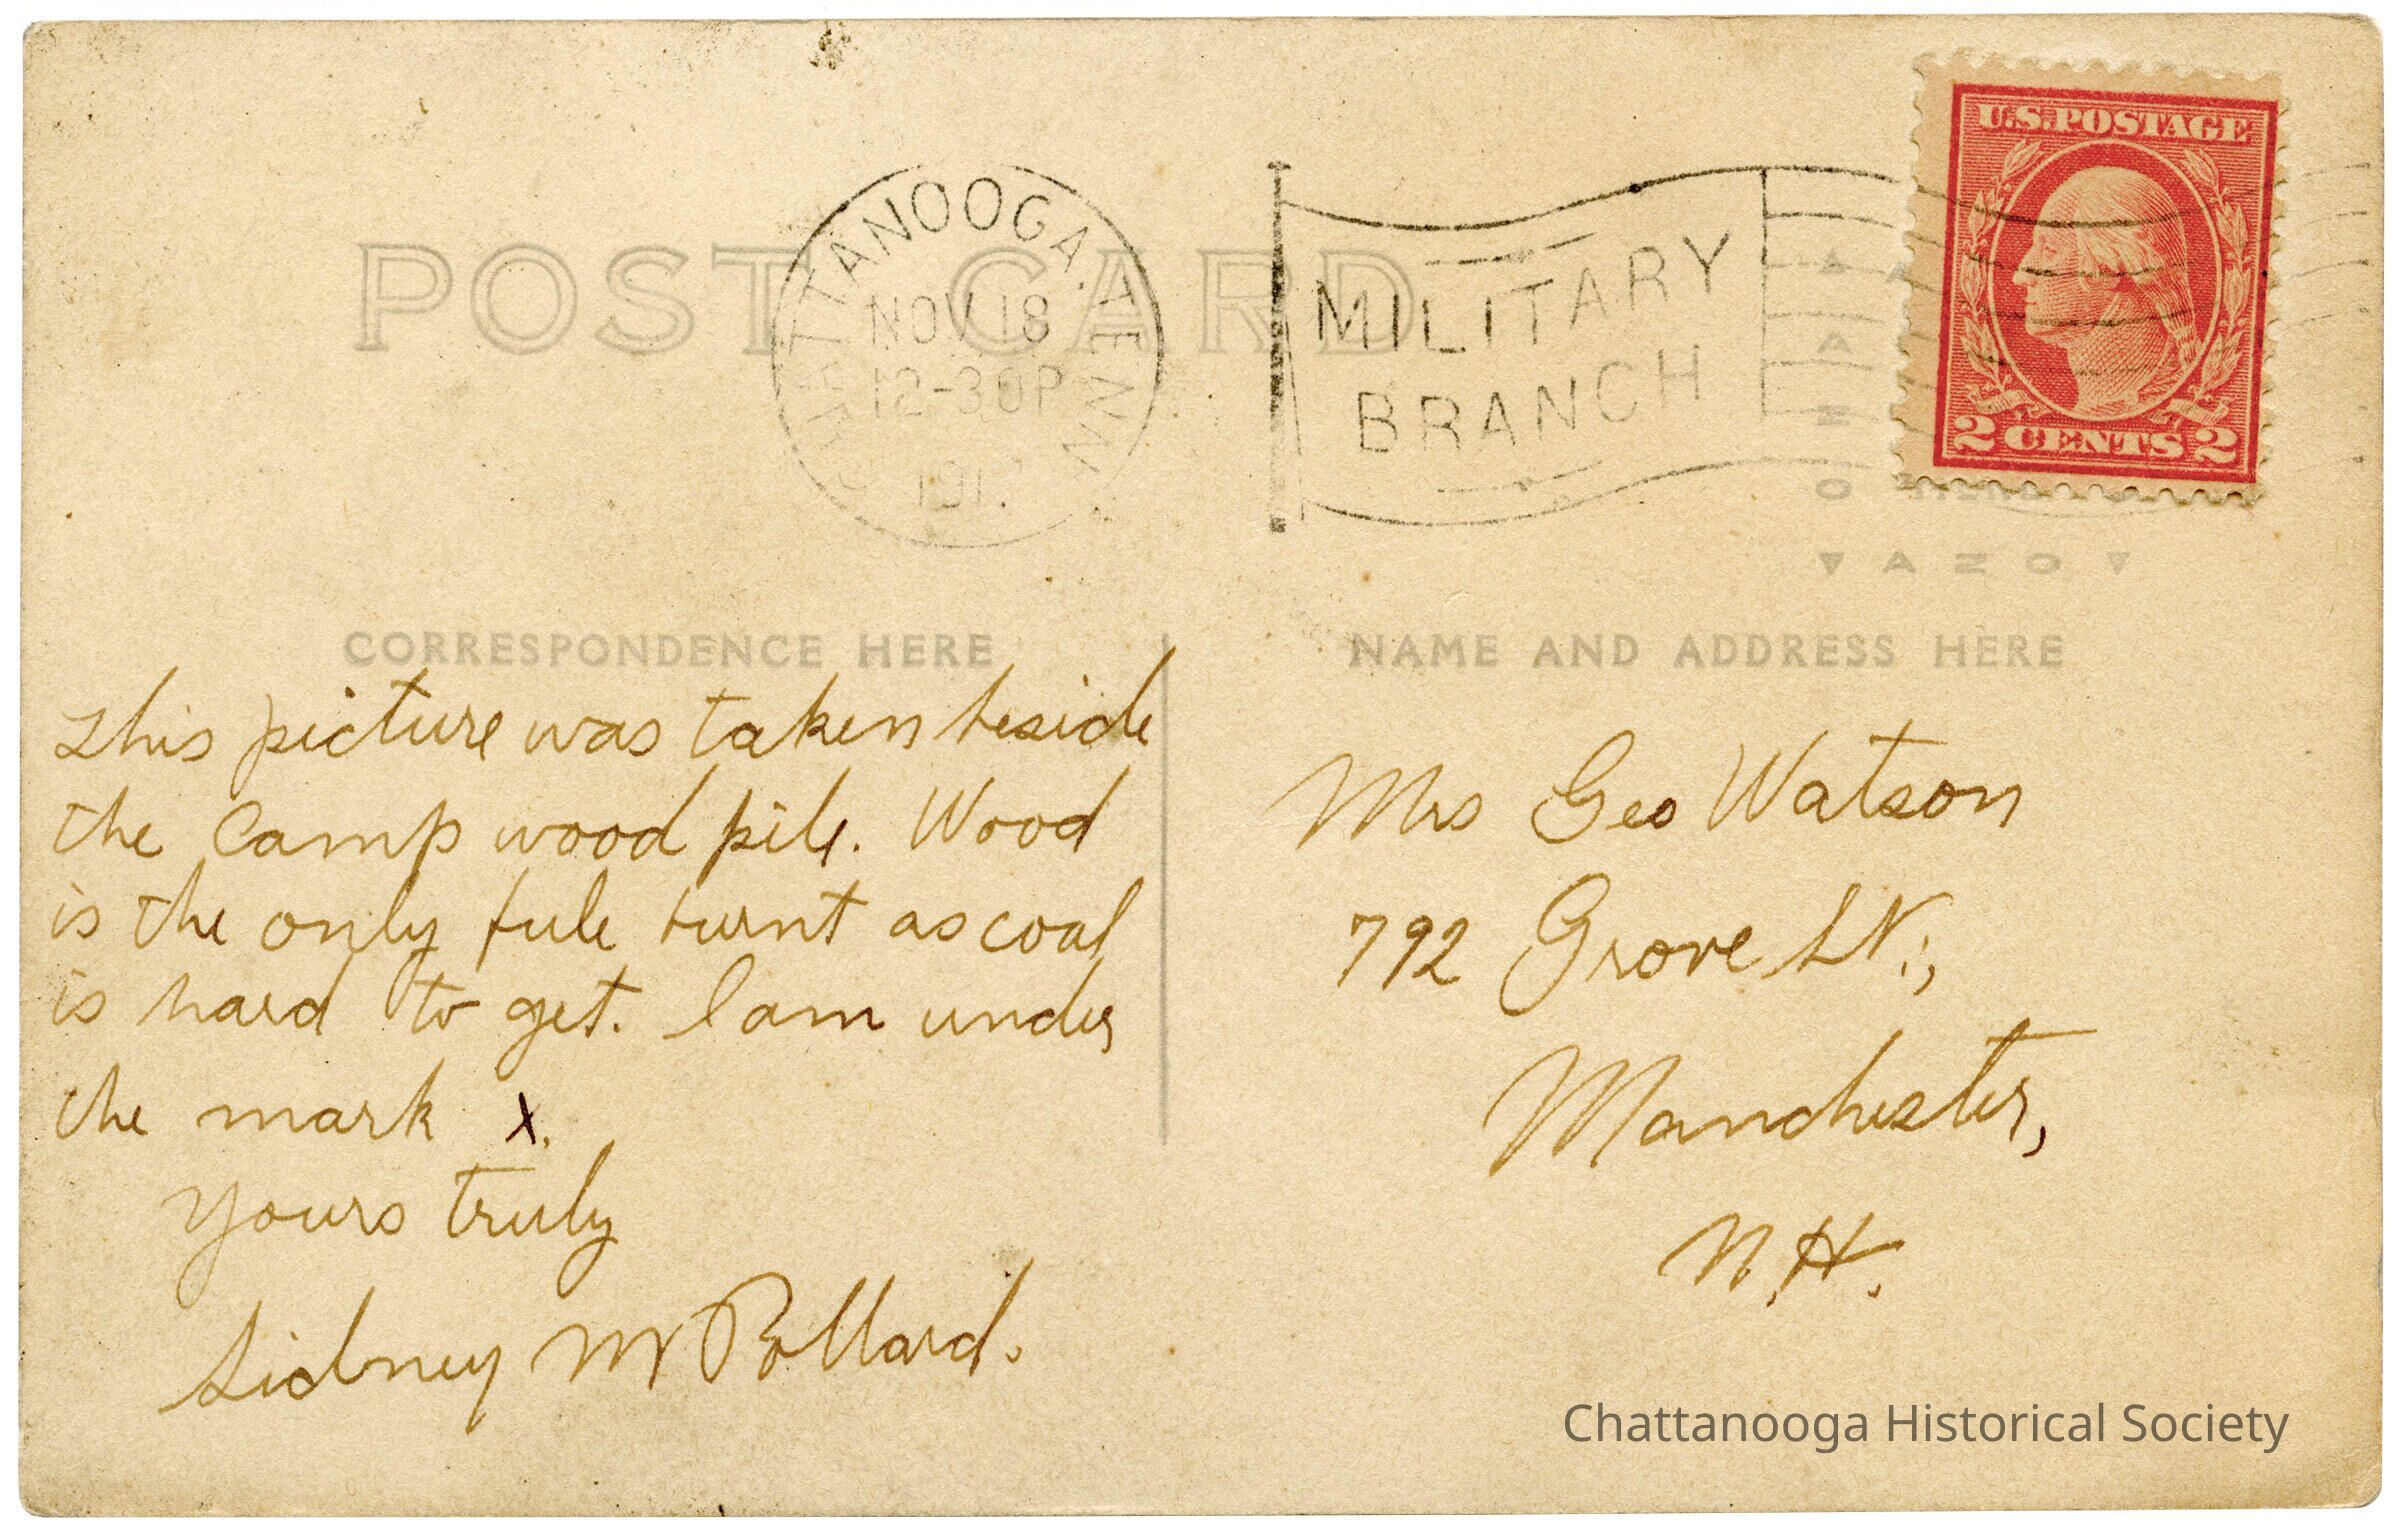 POST CARD
CHATTANOOGA, TENN.
NOV 18
12-30P
MILITARY
BRANCH
U.S. POSTAGE
2 CENTS 2
CORRESPONDENCE HERE
NAME AND ADDRESS HERE
This picture was taken beside
the Camp wood pile. Wood
is the only fule burnt as coal
is hard to get. I am under
the mark x.
Yours truly
Sidney M Pollard.
Mrs Geo Watson
792 Grove St.,
Manchester,
N.H.
Chattanooga Historical Society